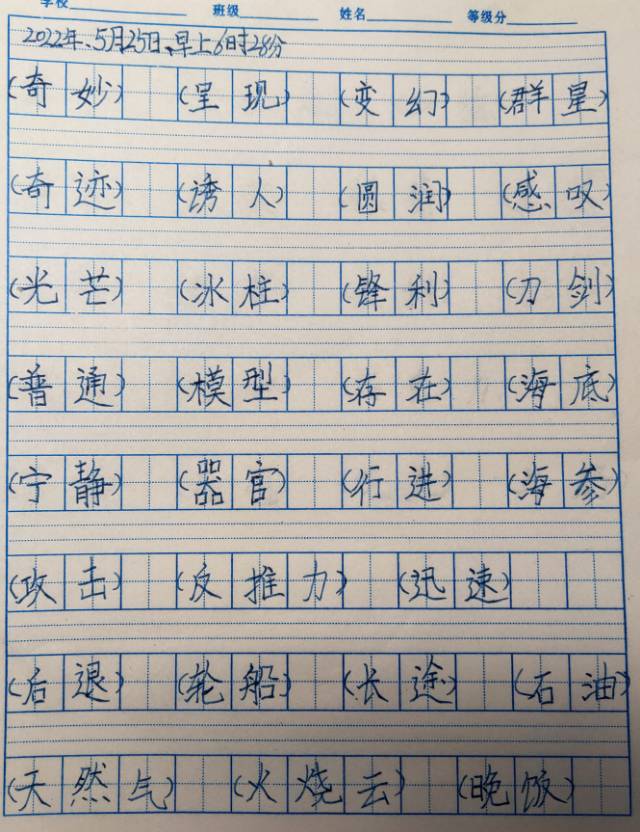 学校 班级 姓名 等级分
2022年、5月25日、早上6时28分
(奇妙) (呈现) (变幻) (群星)
(奇迹) (诱人) (圆润) (感叹)
(光芒) (冰柱) (锋利) (刀剑)
(普通) (模型) (存在) (海底)
(宁静) (器官) (行进) (海参)
(攻击) (反推力) (迅速)
(后退) (轮船) (长途) (石油)
(天然气) (火烧云) (晚饭)